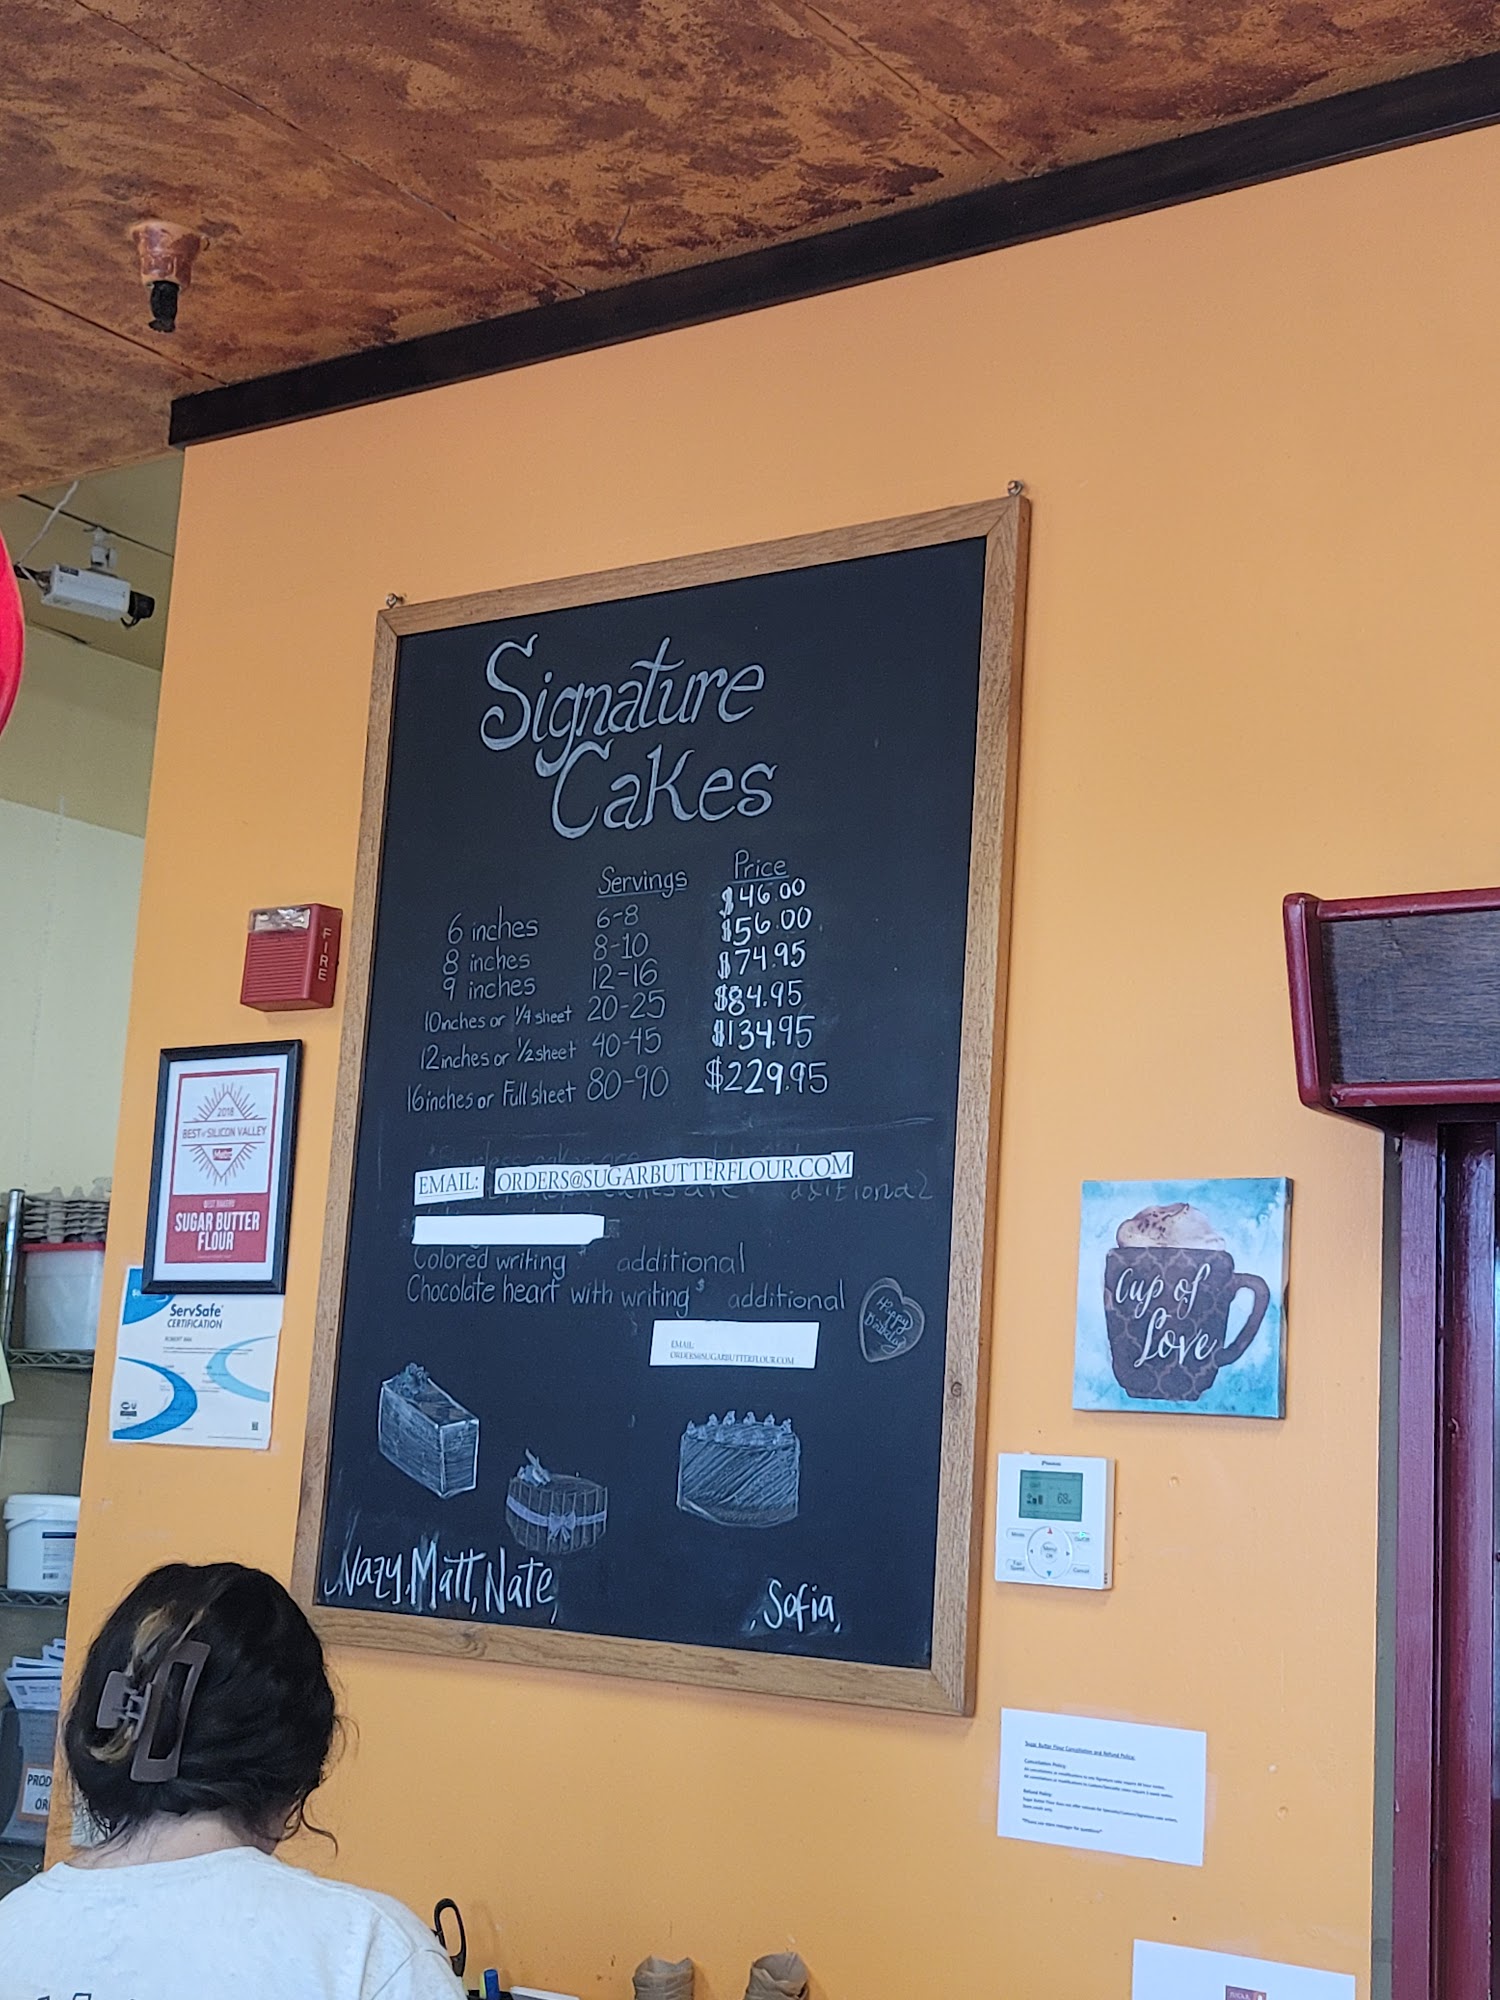 Signature
Cakes
Servings Price
6 inches 6-8 $46.00
8 inches 8-10 $56.00
9 inches 12-16 $74.95
10inches or 1/4 sheet 20-25 $84.95
12inches or 1/2 sheet 40-45 $134.95
16inches or Full sheet 80-90 $229.95
cakes are
EMAIL: ORDERS@SUGARBUTTERFLOUR.COM
cakes are additional
Colored writing $ additional
Chocolate heart with writing $ additional
Happy
Birthday
EMAIL:
ORDERS@SUGARBUTTERFLOUR.COM
Nazy, Matt, Nate, , Sofia,
FIRE
2018
BEST of SILICON VALLEY
Metro
BEST BAKERY
SUGAR BUTTER
FLOUR
ServSafe
CERTIFICATION
Cup of
Love
68
Menu
OK
Cancel
Sugar Butter Flour Cancellation and Refund Policy:
Cancellation Policy:
Refund Policy:
PROD
OR